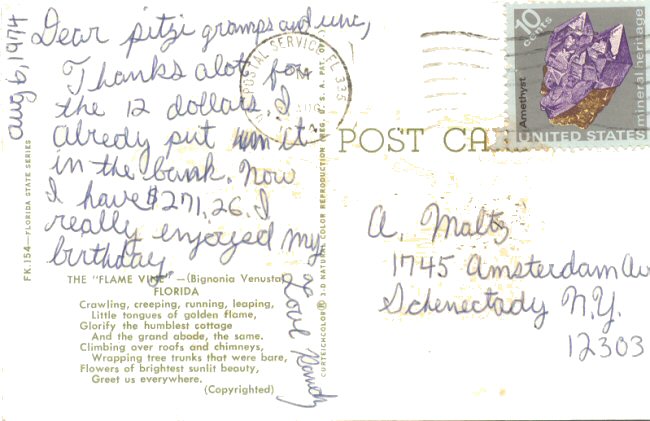 aug 6, 1974
Dear pitzi gramps and unc,
Thanks alot for
the 12 dollars I
alredy put it
in the bank. Now
I have $271,26. I
really enjoyed my
birthday
Love Randy
FK.154—FLORIDA STATE SERIES
THE "FLAME VINE"—(Bignonia Venusta)
FLORIDA
Crawling, creeping, running, leaping,
Little tongues of golden flame,
Glorify the humblest cottage
And the grand abode, the same.
Climbing over roofs and chimneys,
Wrapping tree trunks that were bare,
Flowers of brightest sunlit beauty,
Greet us everywhere.
(Copyrighted)
CURTEICHCOLOR® 3-D NATURAL COLOR REPRODUCTION (REG. U.S.A. PAT. OFF.)
POSTAL SERVICE, FL 335
POST CA
10 cents
Amethyst
mineral heritage
UNITED STATES
A. Maltz
1745 Amsterdam Av
Schenectady N.Y.
12303